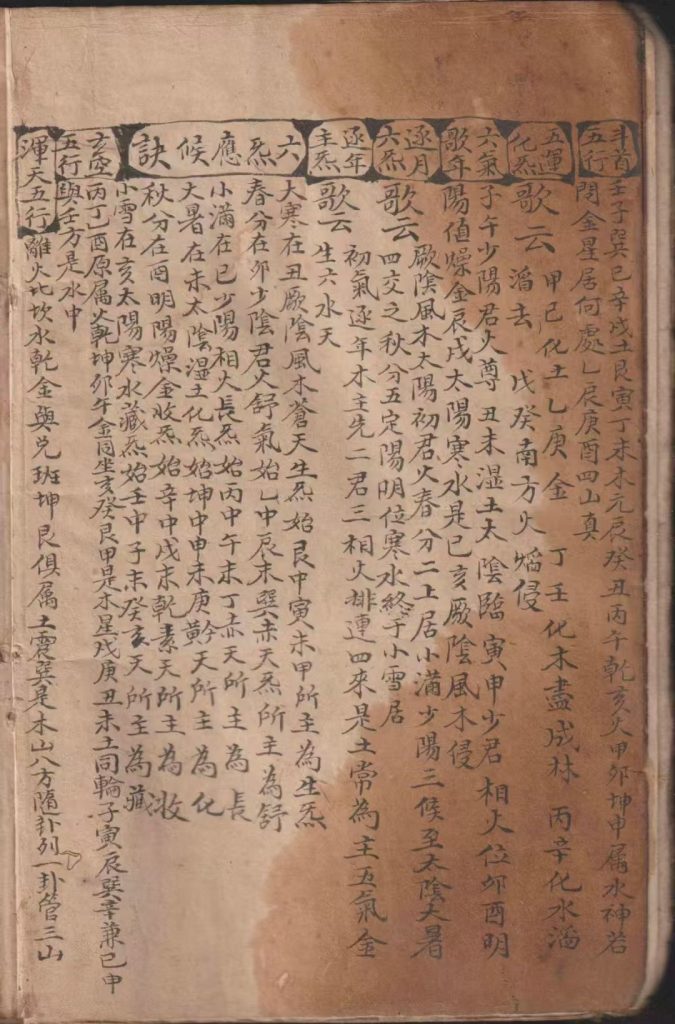 斗首五行
壬子巽巳辛戌土艮寅丁未木元辰癸丑丙午乾亥火甲卯坤申屬水神若
問金星居何處乙辰庚酉四山真
五運化炁
歌云
甲巳化土乙庚金 丁壬化木盡成林 丙辛化水滔
滔去 戊癸南方火熖侵
六氣歌年
子午少陽君火尊丑未湿土太陰臨寅申少君相火位卯酉明
陽值燥金辰戌太陽寒水是巳亥厥陰風木侵
逐月六炁
歌云
厥陰風木大陽初君火春分二上居小滿少陽三候至太陰大暑
四交之秋分五定陽明位寒水終于小雪居
逐年主炁
歌云
初氣逐年木主先二君三相火排連四來是土常為主五氣金
生六水天
六炁應候訣
大寒在丑厥陰風木蒼天生炁始艮中寅未甲所主為生炁
春分在卯少陰君火舒氣始乙中辰末巽赤天炁所主為舒
小滿在巳少陽相火長炁始丙中午末丁赤天所主為長
大暑在未太陰湿土化炁始坤中申未庚黅天所主為化
秋分在酉明陽燥金收炁始辛中戌末乾素天所主為收
小雪在亥太陽寒水藏炁始壬中子末癸亥天所主為藏
玄空五行
丙丁酉原属火乾坤卯午金同坐亥癸艮甲是木星戌庚丑未土同輪子寅辰巽辛兼巳申
與壬方是水中
渾天五行
離火比坎水乾金與兑班坤艮俱属土震巽是木山八方隨卦列一卦管三山